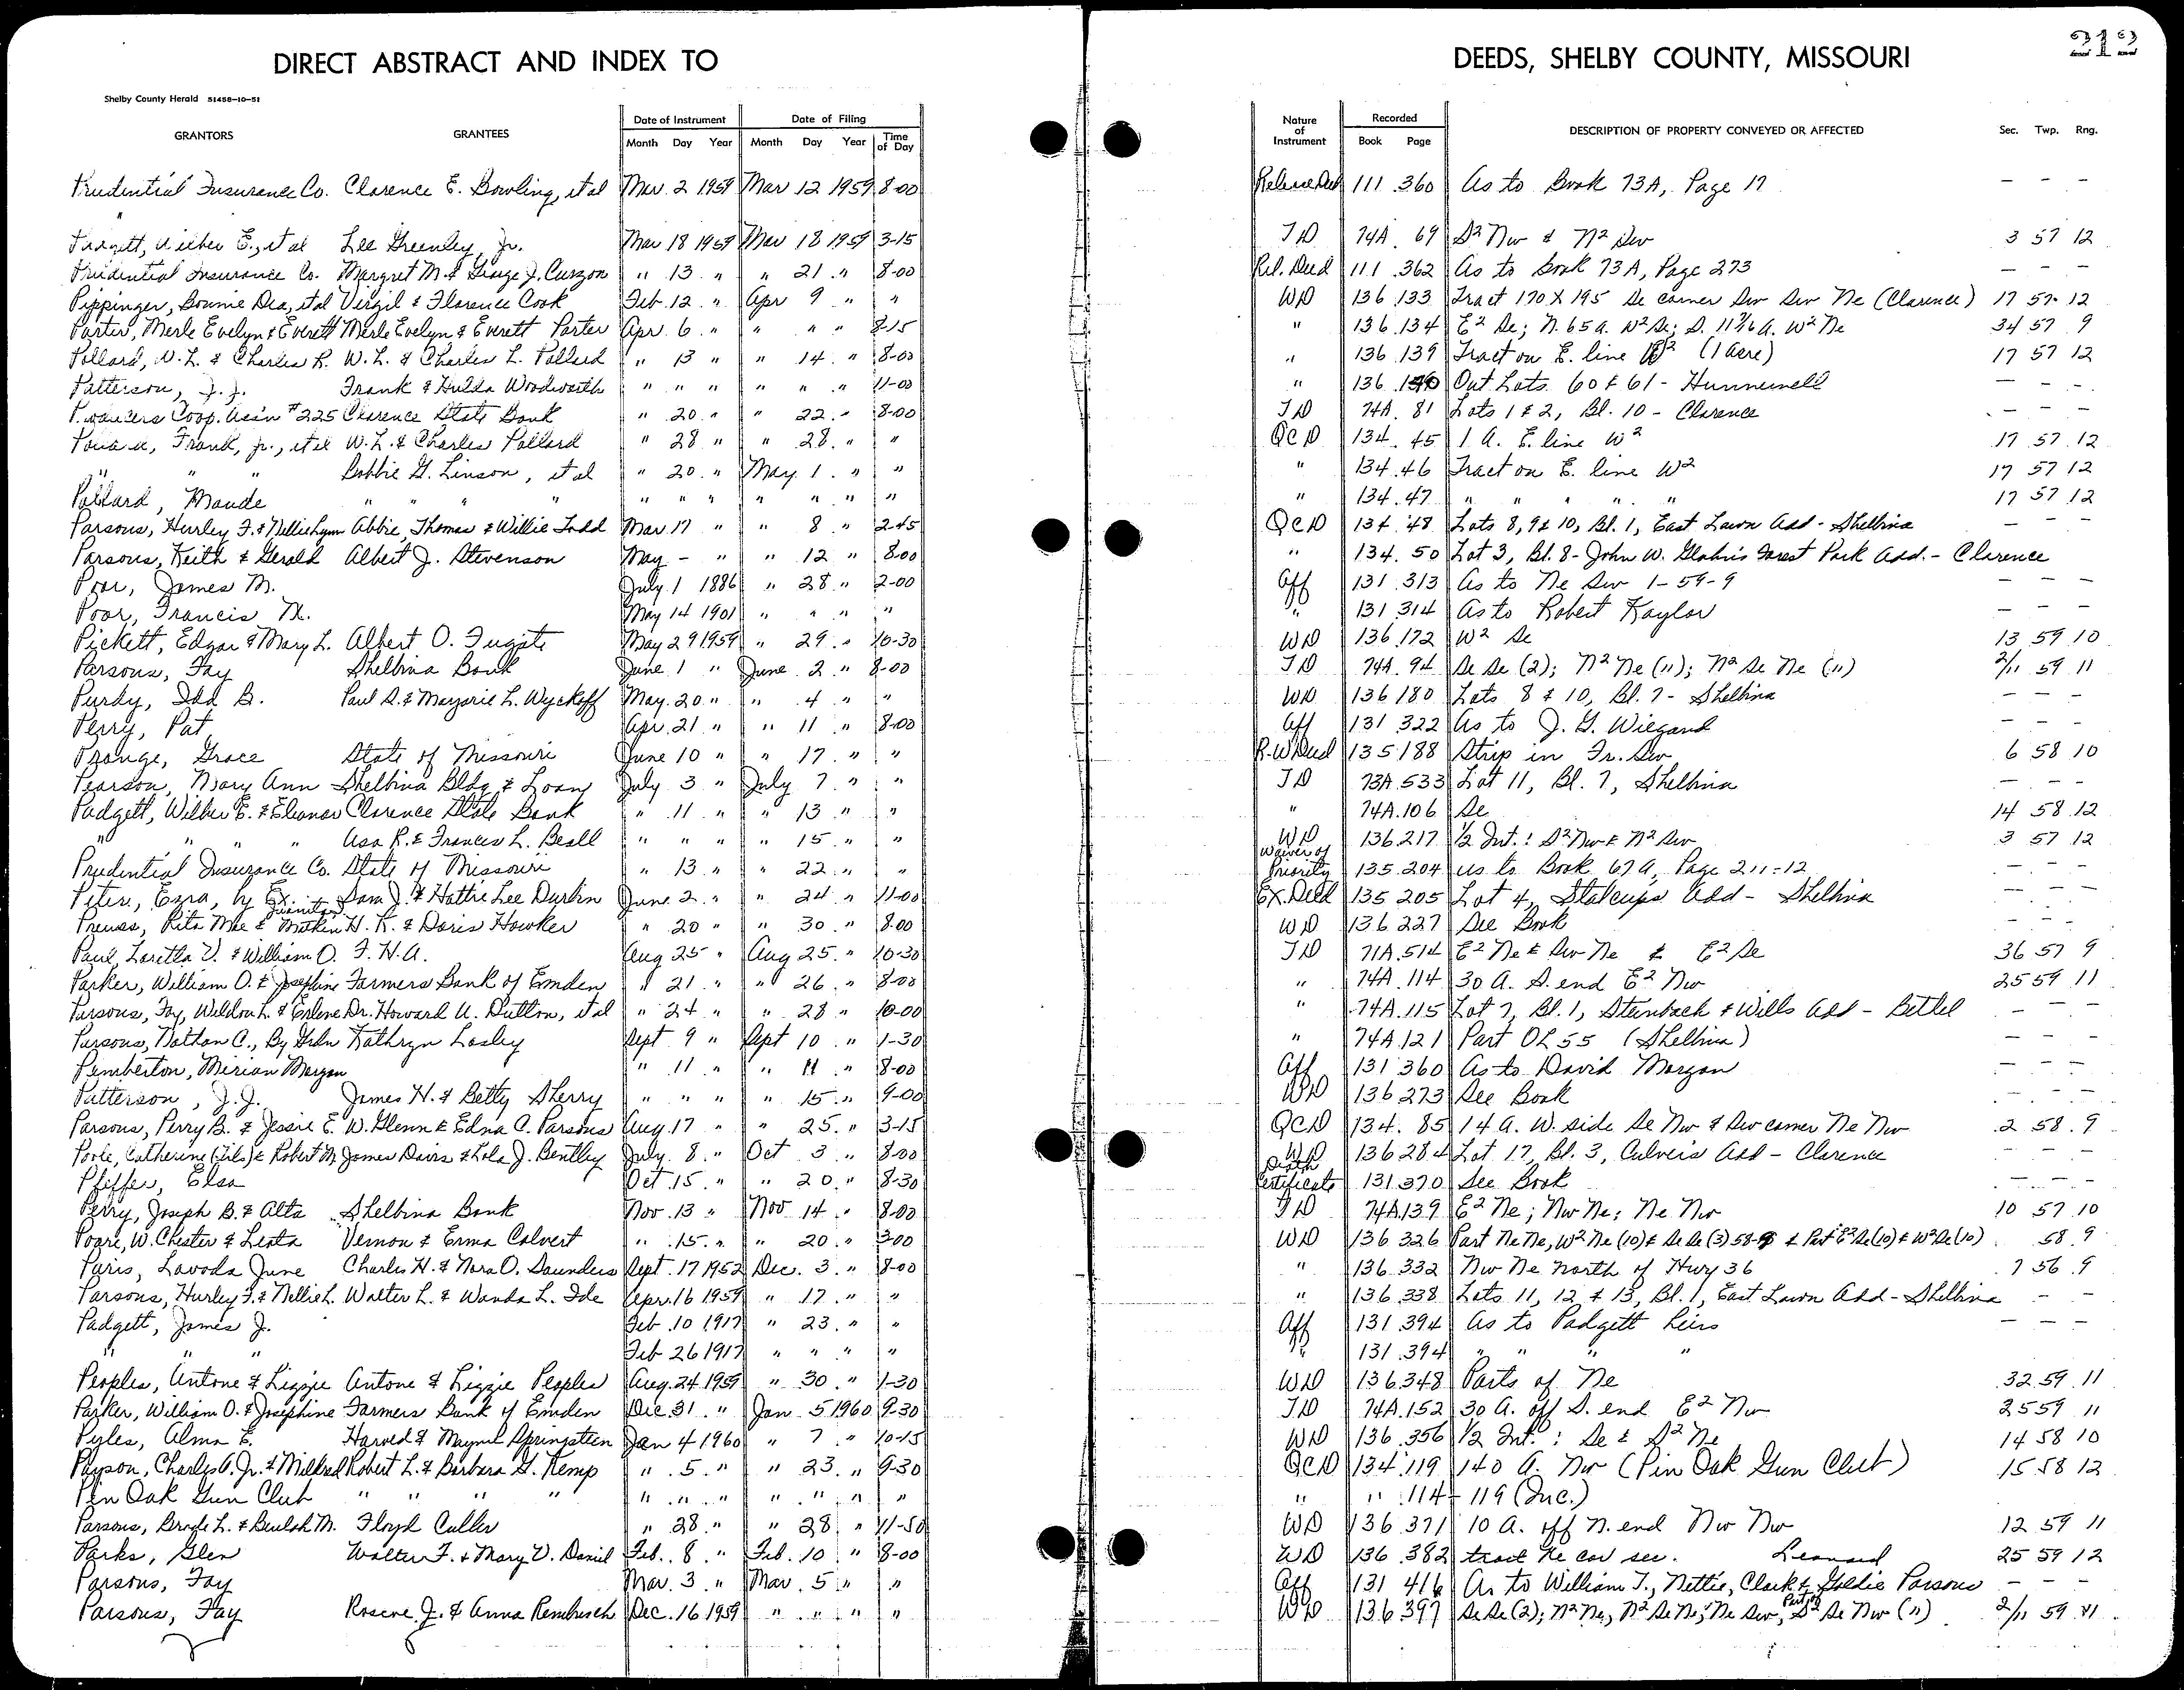 212
DIRECT ABSTRACT AND INDEX TO DEEDS, SHELBY COUNTY, MISSOURI
Shelby County Herald 51458-10-51
GRANTORS GRANTEES Date of Instrument Month Day Year Date of Filing Month Day Year Time of Day Nature of Instrument Recorded Book Page DESCRIPTION OF PROPERTY CONVEYED OR AFFECTED Sec. Twp. Rng.
Prudential Insurance Co. Clarence E. Bowling, et al Mar. 2 1959 Mar 12 1959 8-00 Release Deed 111 360 As to Book 73A, Page 17 - - -
"
Padgett, Wilber E., et al Lee Greenley, Jr. Mar 18 1959 Mar 18 1959 3-15 T D 74A. 69 S² Nw & N² Sw 3 57 12
Prudential Insurance Co. Margret M. & George J. Curzon " 13 " " 21 " 8-00 Rel. Deed 111 .362 As to Book 73A, Page 273 - - -
Pippinger, Bonnie Dea, et al Virgil & Florence Cook Feb. 12 " Apr 9 " " WD 136 133 Tract 170 X 195 Se corner Sw Sw Ne (Clarence) 17 57 12
Porter, Merle Evelyn & Everett Merle Evelyn & Everett Porter Apr. 6 " " " " 8-15 " 136 .134 E² Se; N. 65 a. W² Se; S. 11 7/16 A. W² Ne 34 57 9
Pollard, W. L. & Charles R. W. L. & Charles L. Pollard " 13 " " 14 " 8-00 " 136 139 Tract on E. line W² (1 Acre) 17 57 12
Patterson, J. J. Frank & Hulda Woodworth " " " " " " 11-00 " 136 .140 Out Lots 60 & 61 - Hunnewell - - -
Producers Coop. Ass'n #225 Clarence State Bank " 20 " " 22 " 8-00 T D 74A. 81 Lots 1 & 2, Bl. 10 - Clarence - - -
Pollard, Frank, Jr., et al W. L. & Charles Pollard " 28 " " 28 " " QCD 134. 45 1 A. E. line W² 17 57 12
" " " Bobbie G. Linson, et al " 20 " May 1 " " " 134.46 Tract on E. line W² 17 57 12
Pollard, Maude " " " " " " " " " " " " 134.47 " " " " " 17 57 12
Parsons, Hurley F. & Nellie Lynn Abbie, Thomas & Willie Todd Mar 17 " " 8 " 2-45 QCD 134 48 Lots 8, 9 & 10, Bl. 1, East Lawn Add - Shelbina - - -
Parsons, Keith & Gerald Albert J. Stevenson May - " " 12 " 8-00 " 134. 50 Lot 3, Bl. 8 - John W. Forest Park Add. - Clarence
Poor, James M. July 1 1886 " 28 " 2-00 Aff 131 .313 As to Ne Sw 1-59-9 - - -
Poor, Francis M. May 14 1901 " " " " " 131 .314 As to Robert Kaylor - - -
Pickett, Edgar & Mary L. Albert O. Fugate May 29 1959 " 29 " 10-30 WD 136 .172 W² Se 13 59 10
Parsons, Fay Shelbina Bank June 1 " June 2 " 8-00 T D 74A. 94 Se Se (2); N² Ne (11); N² Se Ne (11) 2/11 59 11
Purdy, Ida B. Paul D. & Marjorie L. Wyckoff May. 20 " " 4 " " WD 136 180 Lots 8 & 10, Bl. 7 - Shelbina - - -
Perry, Pat Apr. 21 " " 11 " 8-00 Aff 131 .322 As to J. G. Wiegand - - -
Prange, Grace State of Missouri June 10 " " 17 " " R.W Deed 135 188 Strip in Fr. Sw 6 58 10
Pearson, Mary Ann Shelbina Bldg & Loan July 3 " July 7 " " T D 73A.533 Lot 11, Bl. 7, Shelbina - - -
Padgett, Wilber E. & Eleanor Clarence State Bank " 11 " " 13 " " " 74A.106 Se 14 58 12
" " " Asa R. & Frances L. Beall " " " " 15 " " WD 136.217 ½ Int.: S² Nw & N² Sw 3 57 12
Prudential Insurance Co. State of Missouri " 13 " " 22 " " Waiver of Priority 135.204 as to Book 67A, Page 211-12 - - -
Peters, Ezra, by Ex. Sam J. & Hattie Lee Durbin June 2 " " 24 " 11-00 Ex. Deed 135 205 Lot 4, Stalcups Add - Shelbina - - -
Preuss, Rita Mae & Juanita H. K. & Doris Howker " 20 " " 30 " 8-00 WD 136 227 See Book - - -
Paul, Loretta V. & William O. F. H. A. Aug 25 " Aug 25 " 10-30 T D 71A.514 E² Ne & Sw Ne & E² Se 36 57 9
Parker, William O. & Josephine Farmers Bank of Emden " 21 " " 26 " 8-00 " 74A. 114 30 A. S. end E² Nw 25 59 11
Parsons, Fay, Weldon L. & Erlene Dr. Howard U. Dutton, et al " 24 " " 28 " 10-00 " 74A.115 Lot 7, Bl. 1, Steinbach & Wills Add - Bethel - - -
Parsons, Nathan C., By Grdn Kathryn Lasley Sept 9 " Sept 10 " 1-30 " 74A.121 Part OL 55 (Shelbina) - - -
Pemberton, Mirian Morgan " 11 " " 11 " 8-00 Aff 131 360 As to David Morgan - - -
Patterson, J. J. James H. & Betty Sherry " " " " 15 " 9-00 WD 136 273 See Book - - -
Parsons, Perry B. & Jessie E. W. Glenn & Edna C. Parsons Aug. 17 " " 25 " 3-15 QCD 134. 85 14 A. W. side Se Nw & Sw corner Ne Nw 2 58 9
Poole, Catherine & Robert M. James Davis & Lola J. Bentley July 8 " Oct 3 " 8-00 WD 136 284 Lot 17, Bl. 3, Culver's Add - Clarence - - -
Pfiffer, Elsa Oct. 15 " " 20 " 8-30 Death Certificate 131.370 See Book - - -
Perry, Joseph B. & Alta Shelbina Bank Nov. 13 " Nov 14 " 8-00 T D 74A.139 E² Ne; Nw Ne; Ne Nw 10 57 10
Poore, W. Chester & Leota Vernon & Erma Calvert " 15 " " 20 " 3-00 WD 136 326 Part Ne Ne, W² Ne (10) & Se Se (3) 58-9 & Part E² Se (10) & W² Se (10) 58 9
Paris, Lavoda June Charles H. & Nora O. Saunders Sept. 17 1952 Dec. 3 " 8-00 " 136 332 Nw Ne north of Hwy 36 7 56 9
Parsons, Hurley F. & Nellie L. Walter L. & Wanda L. Ide Apr. 16 1959 " 17 " " " 136 338 Lots 11, 12 & 13, Bl. 1, East Lawn Add - Shelbina - -
Padgett, James J. Feb. 10 1917 " 23 " " Aff 131 .394 As to Padgett heirs - - -
" " " Feb 26 1917 " " " " " 131 .394 " " " "
Peoples, Antone & Lizzie Antone & Lizzie Peoples Aug. 24 1959 " 30 " 1-30 WD 136.348 Parts of Ne 32 59 11
Parker, William O. & Josephine Farmers Bank of Emden Dec. 31 " Jan 5 1960 9-30 T D 74A.152 30 A. off S. end E² Nw 25 59 11
Pyles, Alma E. Harved & Maymil Springsteen Jan 4 1960 " 7 " 10-15 WD 136 .356 ½ Int.: Se & S² Ne 14 58 10
Payson, Charles A. Jr. & Mildred Robert L. & Barbara G. Kemp " 5 " " 23 " 9-30 QCD 134 .119 140 A. Nw (Pin Oak Gun Club) 15 58 12
Pin Oak Gun Club " " " " " " " " " " " " " 114-119 (Inc.)
Parsons, Brade L. & Beulah M. Floyd Culler " 28 " " 28 " 11-50 WD 136 .371 10 A. off N. end Nw Nw 12 59 11
Parks, Glen Walter F. & Mary V. Daniel Feb. 8 " Feb. 10 " 8-00 WD 136 .382 tract Ne cor sec. Leonard 25 59 12
Parsons, Fay Mar. 3 " Mar. 5 " " Aff 131 416 As to William T., Nettie, Clark & Goldie Parsons - - -
Parsons, Fay Roscoe J. & Anna Rembusch Dec. 16 1959 " " " " WD 136 397 Se Se (2); N² Ne; N² Se Ne; Ne Sw; Part of S² Se Nw (11) 2/11 59 11